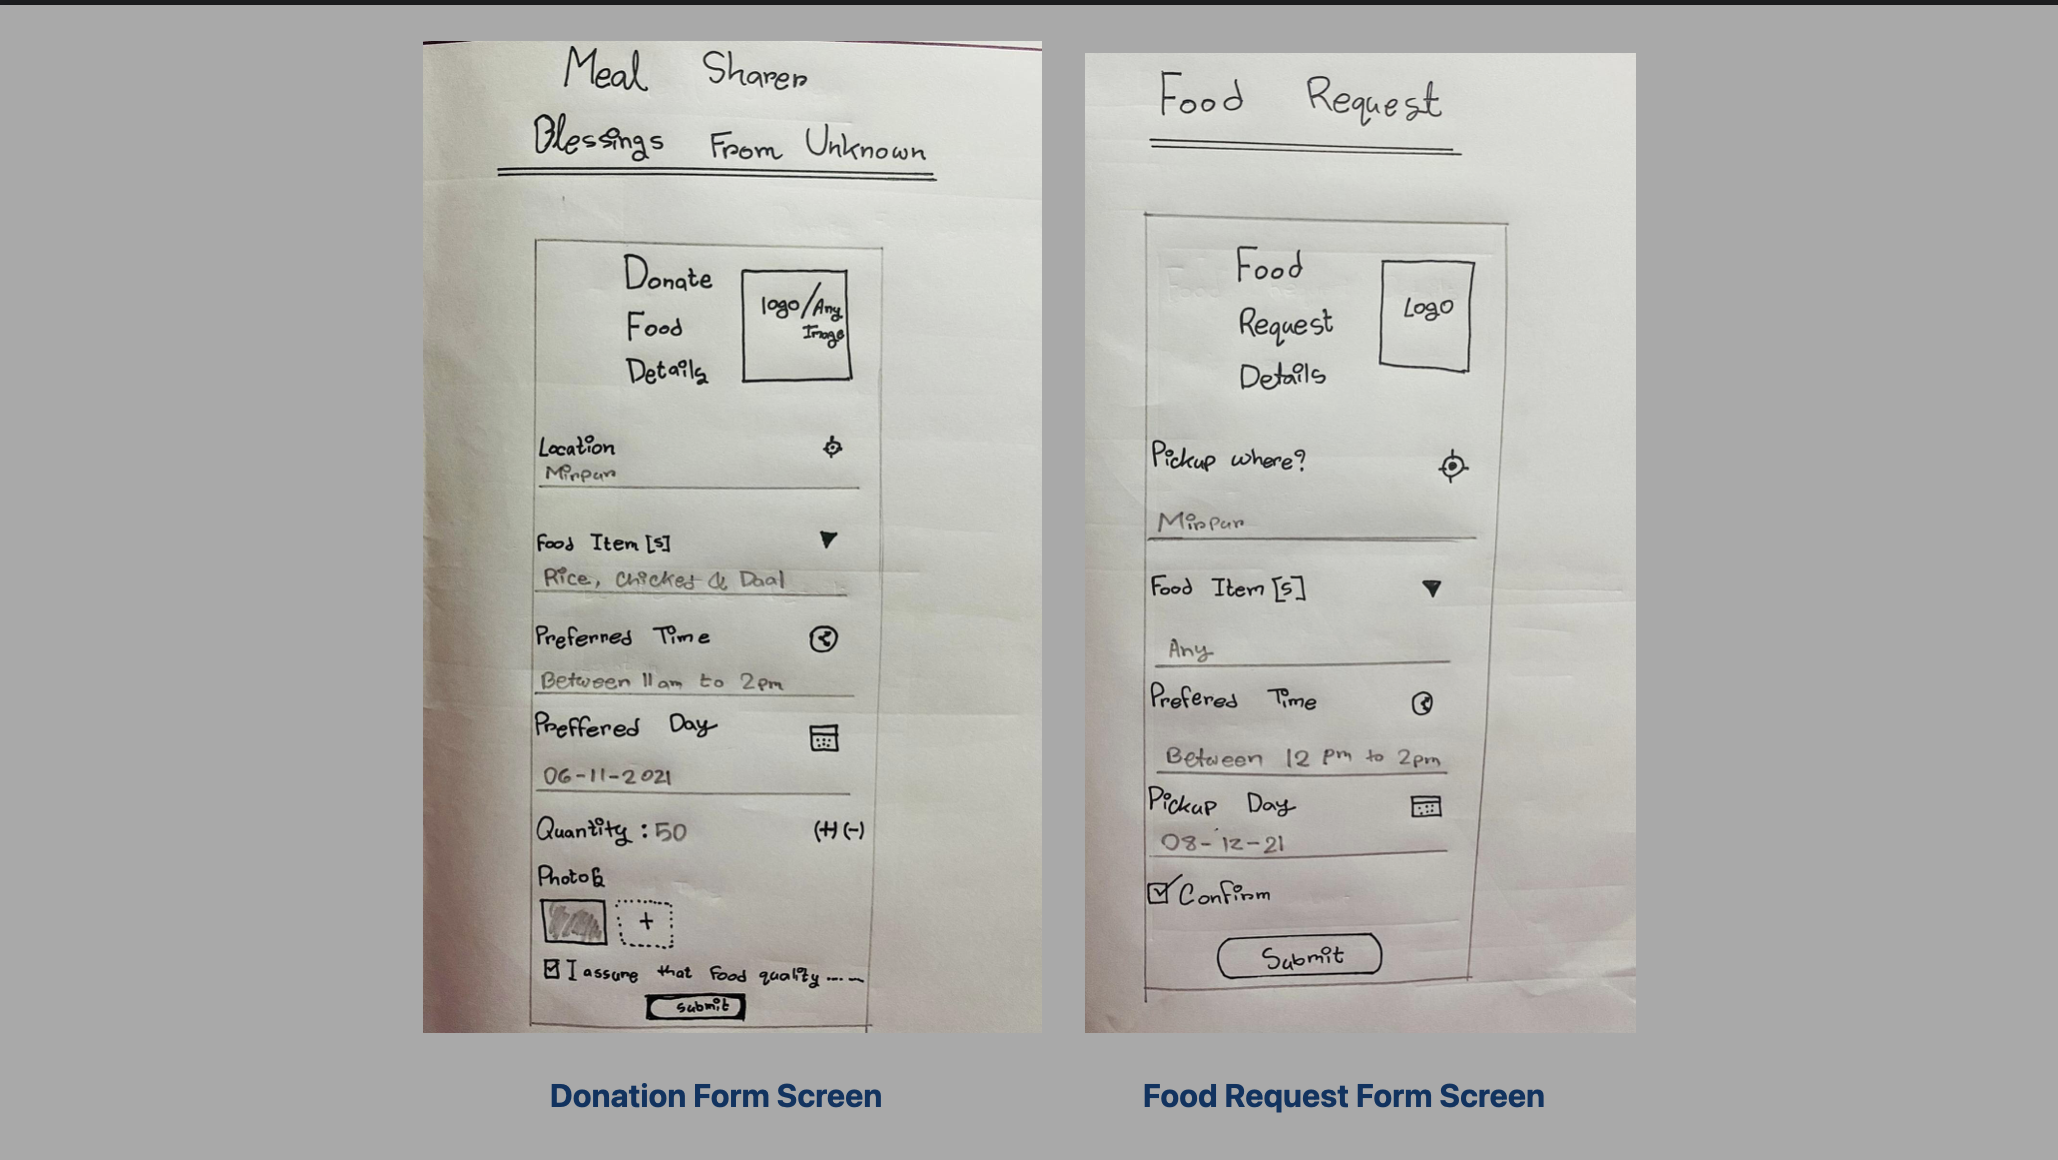 Meal Sharer
Blessings From Unknown
Donate
Food
Details
logo/Any
Image
Location
Mirpur
Food Item [s]
Rice, Chicked & Daal
Preferred Time
Between 11 am to 2pm
Preffered Day
06-11-2021
Quantity : 50 (+) (-)
Photos
+
I assure that food quality ...
Submit
Donation Form Screen
Food Request
Food
Request
Details
Logo
Pickup where?
Mirpur
Food Item [s]
Any
Prefered Time
Between 12 pm to 2pm
Pickup Day
08-12-21
Confirm
Submit
Food Request Form Screen